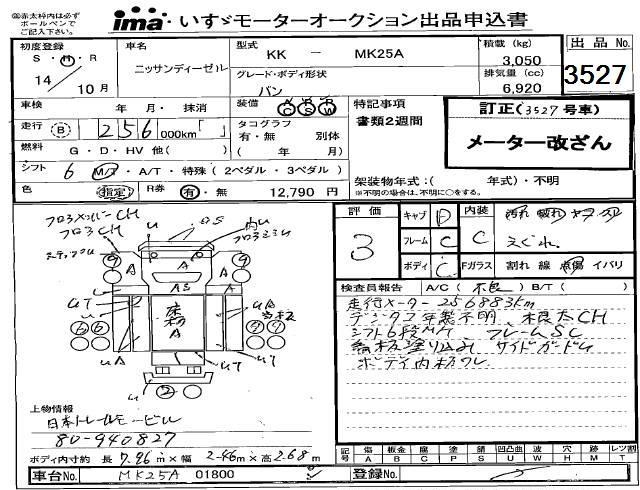 ㊟赤太枠内は必ず
ボールペンで
ご記入下さい。
ima・いすゞモーターオークション出品申込書
初度登録 S・H・R 14年 10月
車名 ニッサンディーゼル
型式 KK － MK25A
グレード・ボディ形状 バン
積載 (kg) 3,050
排気量 (cc) 6,920
出品 No. 3527
車検 年 月・ 抹消
装備 AC PS PW
特記事項
書類2週間
訂正(3527号車)
メーター改ざん
走行 B 256 000km「 」
タコグラフ 有・無 別体 ( 年 月)
燃料 G・D・HV 他( )
シフト 6 M/T・A/T・特殊 (2ペダル・3ペダル)
架装物年式：( 年式)・不明
※不明の場合は、不明に○をする。
色 指定 R券 有・無 12,790 円
評価 3
キャブ D
フレーム C
ボディ C
内装 C
汚れ 破れ ヤブ
えぐれ
Fガラス 割れ 線 点傷 イバリ
検査員報告 A/C( 不良 ) B/T( )
走行メーター256883km
デジタコ年製不明、根太CH
シフト6段M/T フレームSC
床板塗り込み サイドガードU
ボディ内板ワレ
フロアメンバーCH
フロアCH
ステップU
内U
フロアミミU
A
A
A
A
AS
UT
床板
A
UA
UA
UT
UT
上物情報
日本トレールモービル
80-940827
ボディ内寸約 長 7.96m×幅 2.46m×高 2.68m
記号 傷A 板金B 腐C 塗P 錆S 凹凸曲U 波W 穴H 跡M レツ割T
車台No. MK25A 01800
登録No.